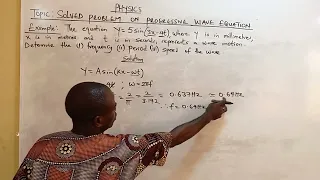 PHYSICS
Topic: SOLVED PROBLEM ON PROGRESSIVE WAVE EQUATION
Example: The equation Y = 5 sin(3x-4t) where Y is in millimetres,
x is in metres and t is in seconds, represents a wave motion.
Determine the (i) frequency (ii) period (iii) speed of the wave
Solution
Y = A sin(kx - wt)
w = 2πf
= 2/π = 2/3.142 = 0.637Hz ≈ 0.64Hz
∴ f = 0.64Hz